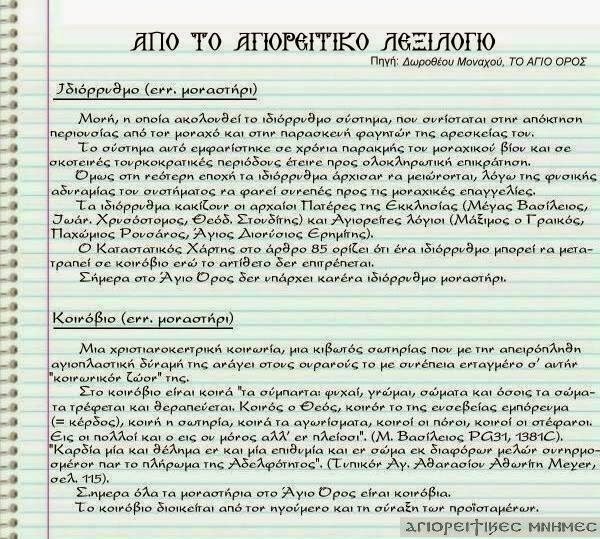 ΑΠΟ ΤΟ ΑΓΙΟΡΕΙΤΙΚΟ ΛΕΞΙΛΟΓΙΟ
Πηγή: Δωροθέου Μοναχού, ΤΟ ΑΓΙΟ ΟΡΟΣ
Ιδιόρρυθμο (ενν. μοναστήρι)
Μονή, η οποία ακολουθεί το ιδιόρρυθμο σύστημα, που συνίσταται στην απόκτηση
περιουσίας από τον μοναχό και στην παρασκευή φαγητών της αρεσκείας του.
Το σύστημα αυτό εμφανίστηκε σε χρόνια παρακμής του μοναχικού βίου και σε
σκοτεινές τουρκοκρατικές περιόδους έτεινε προς ολοκληρωτική επικράτηση.
Όμως στη νεότερη εποχή τα ιδιόρρυθμα άρχισαν να μειώνονται, λόγω της φυσικής
αδυναμίας του συστήματος να φανεί συνεπές προς τις μοναχικές επαγγελίες.
Τα ιδιόρρυθμα κακίζουν οι αρχαίοι Πατέρες της Εκκλησίας (Μέγας Βασίλειος,
Ιωάν. Χρυσόστομος, Θεόδ. Στουδίτης) και Αγιορείτες λόγιοι (Μάξιμος ο Γραικός,
Παχώμιος Ρουσάνος, Άγιος Διονύσιος Ερημίτης).
Ο Καταστατικός Χάρτης στο άρθρο 85 ορίζει ότι ένα ιδιόρρυθμο μπορεί να μετα-
τραπεί σε κοινόβιο ενώ το αντίθετο δεν επιτρέπεται.
Σήμερα στο Άγιο Όρος δεν υπάρχει κανένα ιδιόρρυθμο μοναστήρι.
Κοινόβιο (ενν. μοναστήρι)
Μια χριστιανοκεντρική κοινωνία, μια κιβωτός σωτηρίας που με την απειρόπληθη
αγιοπλαστική δύναμή της ανάγει στους ουρανούς το με συνέπεια ενταγμένο σ' αυτήν
"κοινωνικόν ζώον" της.
Στο κοινόβιο είναι κοινά "τα σύμπαντα: ψυχαί, γνώμαι, σώματα και όσοις τα σώμα-
τα τρέφεται και θεραπεύεται. Κοινός ο Θεός, κοινόν το της ευσεβείας εμπόρευμα
(= κέρδος), κοινή η σωτηρία, κοινά τα αγωνίσματα, κοινοί οι πόνοι, κοινοί οι στέφανοι.
Εις οι πολλοί και ο εις ου μόνος αλλ' εν πλείοσι". (Μ. Βασίλειος PG31, 1381C).
"Καρδία μία και θέλημα εν και μία επιθυμία και εν σώμα εκ διαφόρων μελών συνηρμο-
σμένον παν το πλήρωμα της Αδελφότητος". (Τυπικόν Αγ. Αθανασίου Αθωνίτη Meyer,
σελ. 115).
Σημερα όλα τα μοναστήρια στο Άγιο Όρος είναι κοινόβια.
Το κοινόβιο διοικείται από τον ηγούμενο και τη σύναξη των προϊσταμένων.
ΑΓΙΟΡΕΙΤΙΚΕΣ ΜΝΗΜΕΣ